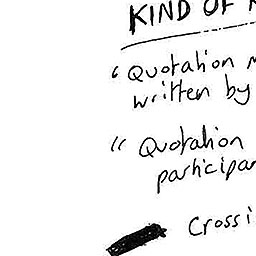 KIND OF
' Quotation
written by
" Quotation
participa
Crossi